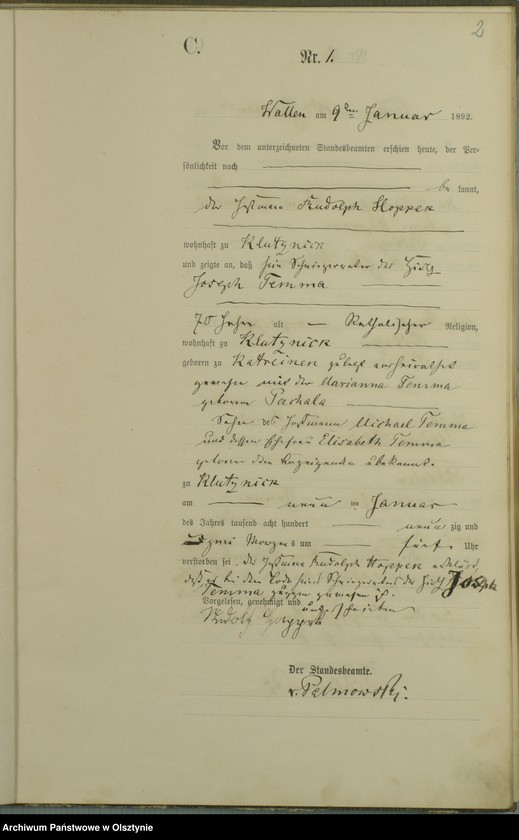 2
C.
Nr. 1.
Wallen am 9ten Januar 1892.
Vor dem unterzeichneten Standesbeamten erschien heute, der Per-
sönlichkeit nach
be kannt,
der Instmann Rudolph Hoppek
wohnhaft zu Klutznick
und zeigte an, daß sein Schwiegervater der
Joseph Temma
70 Jahre alt Katholischer Religion,
wohnhaft zu Klutznick
geboren zu Katreinen zuletzt verheirathet
gewesen mit der Marianna Temma
geborene Pachala
Sohn des Instmann Michael Temma
und dessen Ehefrau Elisabeth Temma
geborene dem Anzeigenden unbekannt.
zu Klutznick
am neun ten Januar
des Jahres tausend acht hundert neun zig und
zwei Morgens um fünf Uhr
verstorben sei. Der Instmann Rudolph Hoppek erklärt,
daß er bei dem Tode seines Schwiegervaters der Joseph
Temma zugegen gewesen ist.
Vorgelesen, genehmigt und unterschrieben
Rudolf
Der Standesbeamte.
v. Palmowski.
Archiwum Państwowe w Olsztynie